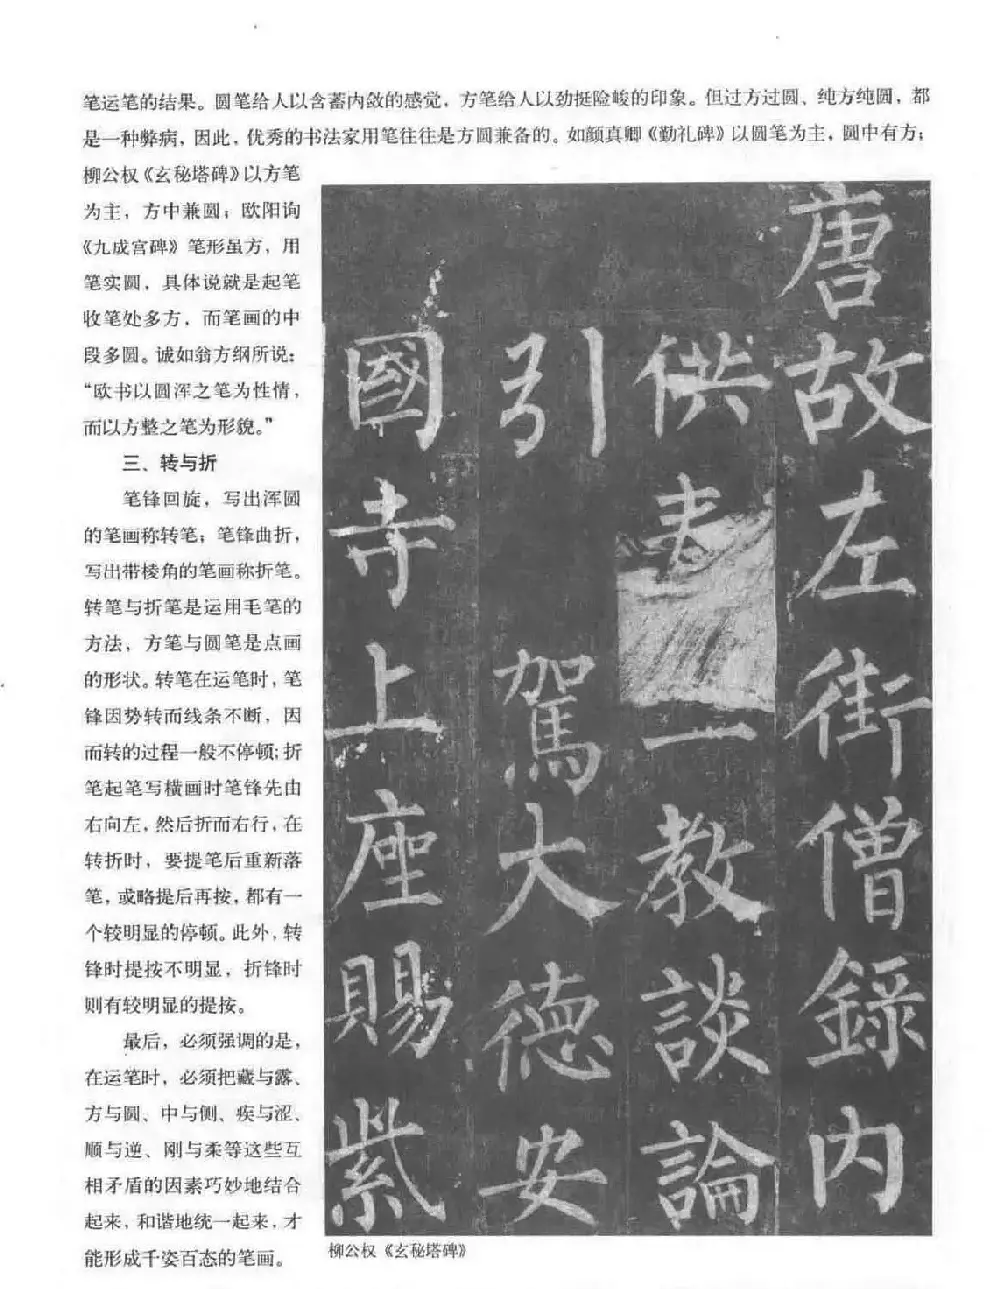 笔运笔的结果。圆笔给人以含蓄内敛的感觉，方笔给人以劲挺险峻的印象。但过方过圆、纯方纯圆，都
是一种弊病，因此，优秀的书法家用笔往往是方圆兼备的。如颜真卿《勤礼碑》以圆笔为主，圆中有方；
柳公权《玄秘塔碑》以方笔
为主，方中兼圆；欧阳询
《九成宫碑》笔形虽方，用
笔实圆，具体说就是起笔
收笔处多方，而笔画的中
段多圆。诚如翁方纲所说：
“欧书以圆浑之笔为性情，
而以方整之笔为形貌。”
三、转与折
笔锋回旋，写出浑圆
的笔画称转笔；笔锋曲折，
写出带棱角的笔画称折笔。
转笔与折笔是运用毛笔的
方法，方笔与圆笔是点画
的形状。转笔在运笔时，笔
锋因势转而线条不断，因
而转的过程一般不停顿；折
笔起笔写横画时笔锋先由
右向左，然后折而右行，在
转折时，要提笔后重新落
笔，或略提后再按，都有一
个较明显的停顿。此外，转
锋时提按不明显，折锋时
则有较明显的提按。
最后，必须强调的是，
在运笔时，必须把藏与露、
方与圆、中与侧、疾与涩、
顺与逆、刚与柔等这些互
相矛盾的因素巧妙地结合
起来，和谐地统一起来，才
能形成千姿百态的笔画。
唐故左街僧錄内
供表一教談論
引駕大德安
國寺上座賜紫
柳公权《玄秘塔碑》